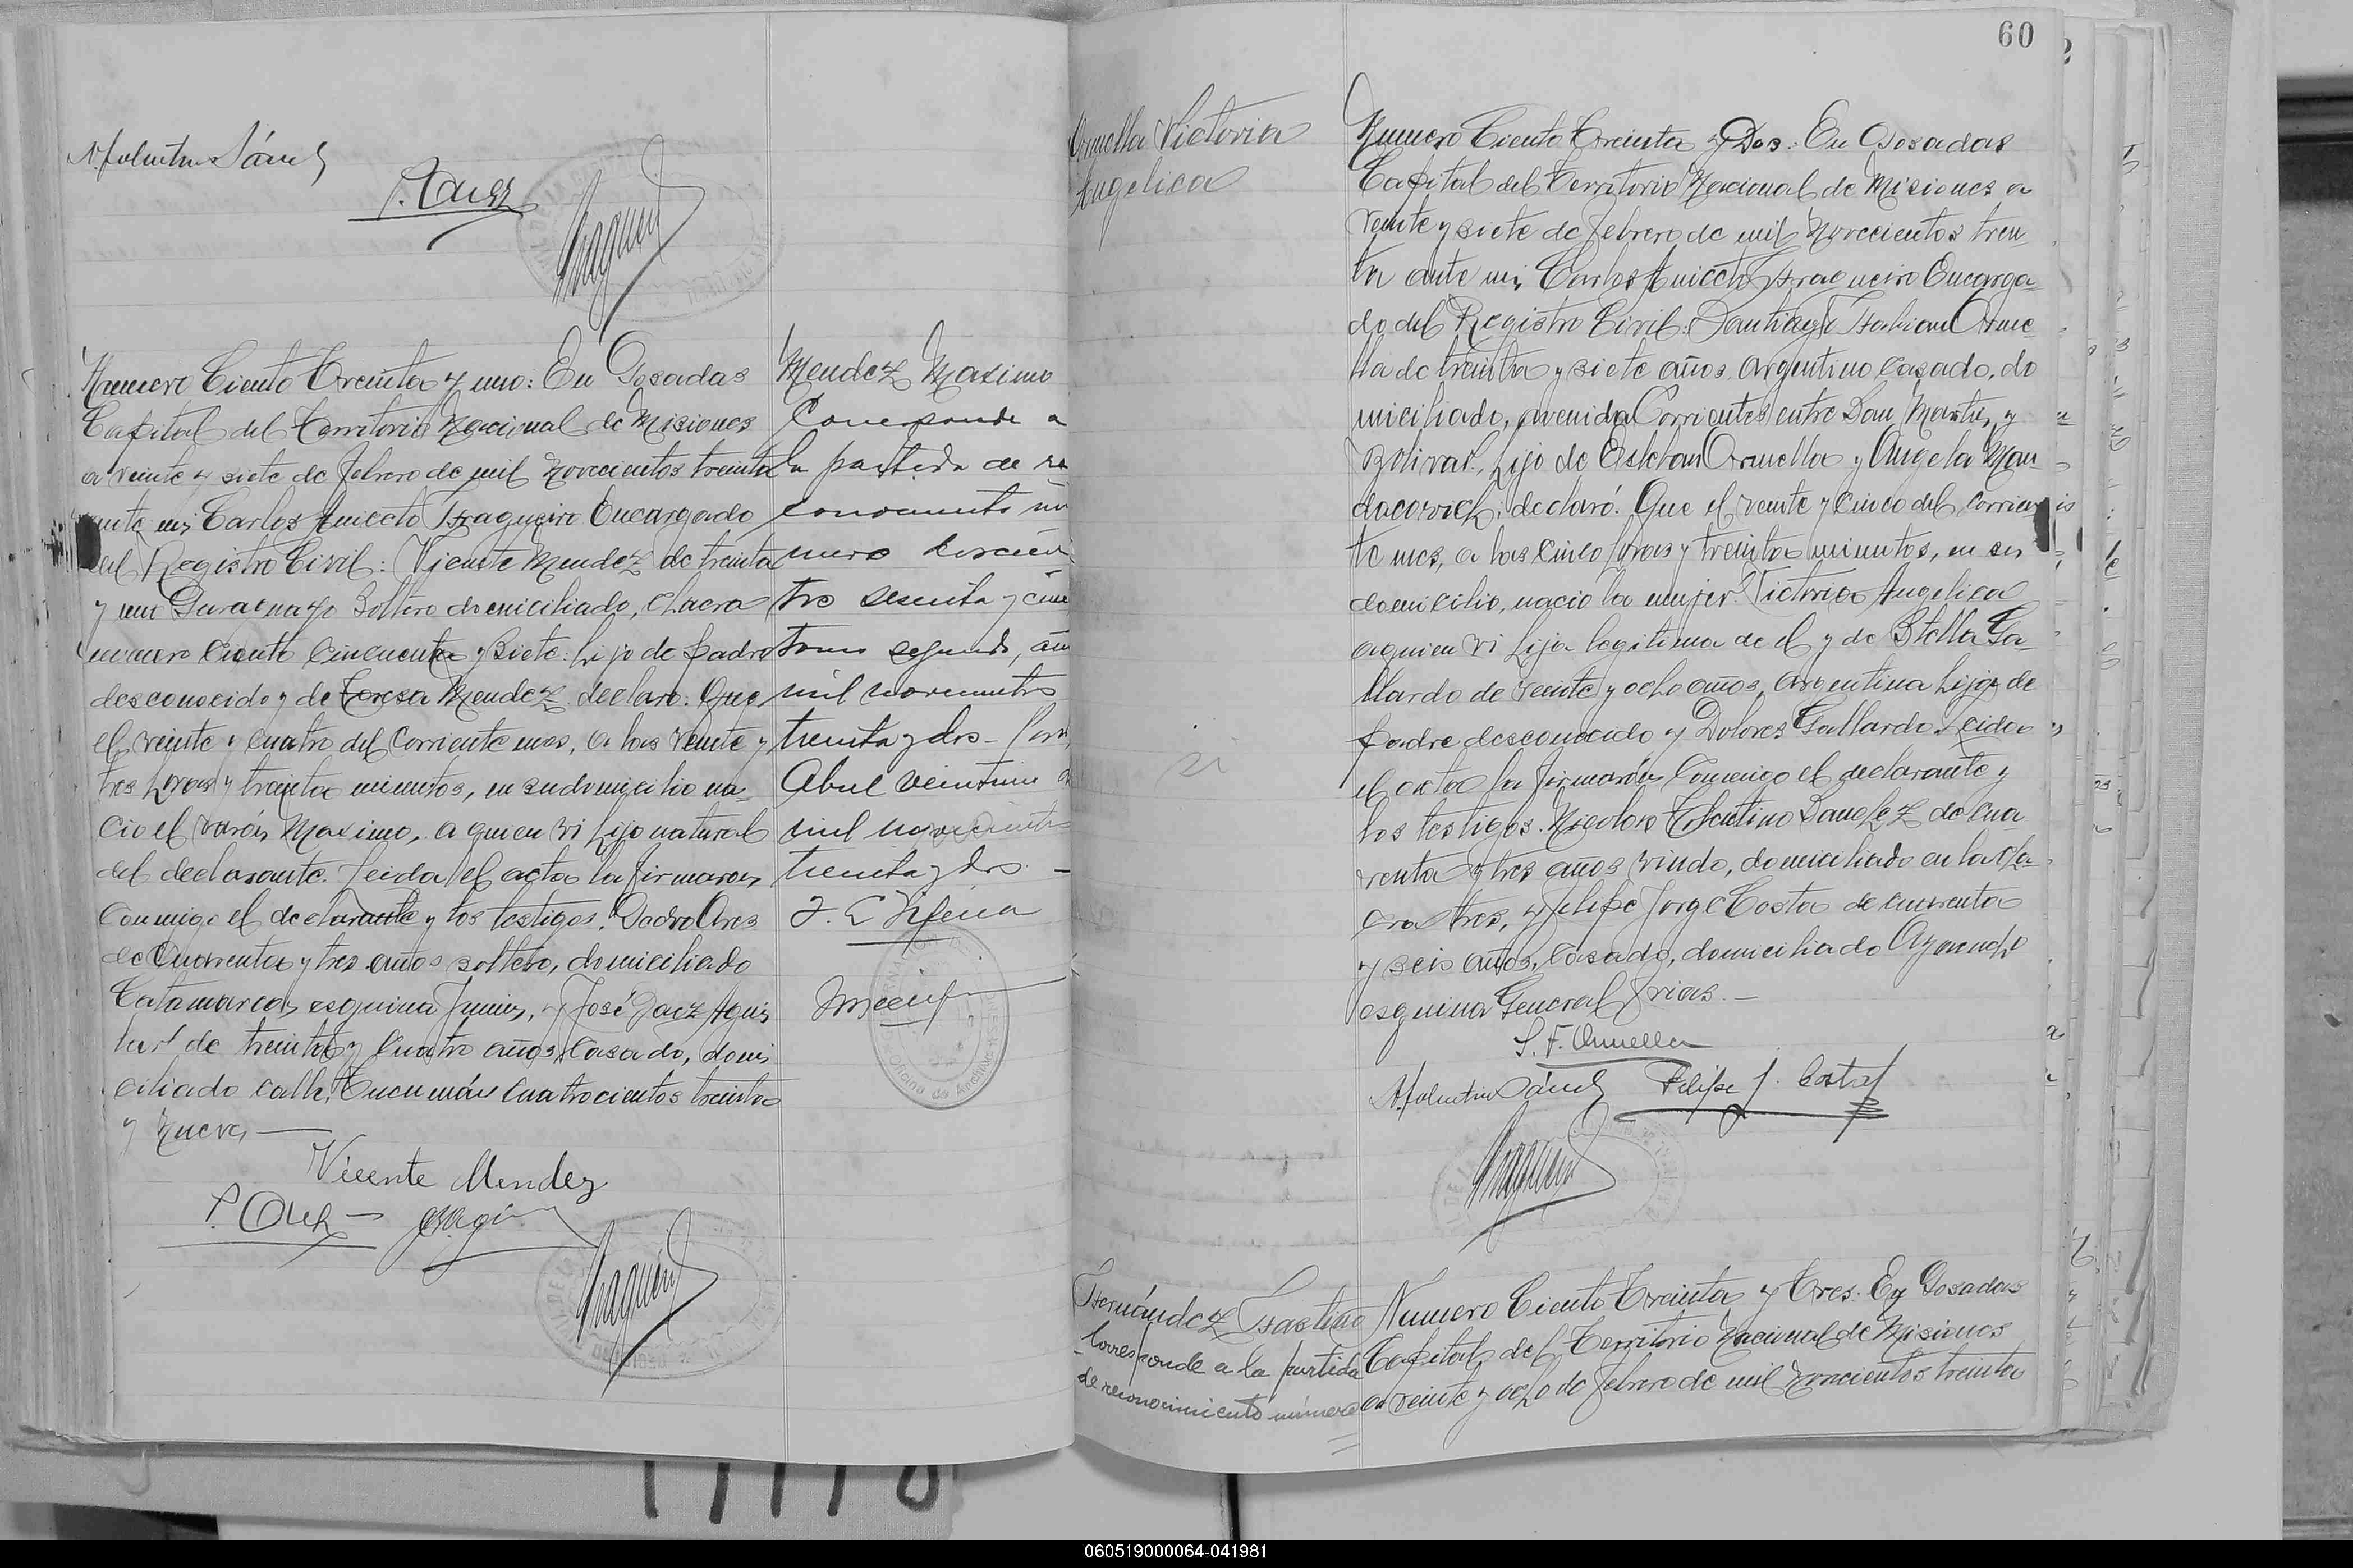 Sánch
Numero Ciento Treinta y uno: En Posadas
Capital del Territorio Nacional de Misiones
a veinte y siete de febrero de mil novecientos treinta
ante mi Carlos Aniceto Fragueiro Encargado
del Registro Civil: Vicente Mendez de treinta
y un Paraguayo Soltero domiciliado, chacra
numero Ciento Cincuenta y Siete: hijo de padre
desconocido y de Teresa Mendez declaro: Que
el veinte y cuatro del Corriente mes, a las veinte y
tres horas y treinta minutos, en su domicilio na-
cio el varón Maximo, a quien vi hijo natural
del declarante. Leida el acta la firmaron
Conmigo el declarante y los testigos: Pedro
de Cuarenta y tres años soltero, domiciliado
Catamarca esquina Junin, y José Paez Agui
lar de treinta y Cuatro años Casado, domi
ciliado calle Tucumán Cuatrocientos treinta
y Nueve
Vicente Mendez
Mendez Maximo
Corresponde a
la partida de re
conocimiento nú
mero
sesenta y
tomo segundo, añ
mil novecientos
treinta y dos - Pos
Abril veintiuno
mil novecientos
treinta y dos -
60
Ormella Victoria
Angelica
Numero Ciento Treinta y Dos: En Posadas
Capital del Territorio Nacional de Misiones a
veinte y siete de febrero de mil Novecientos trein
ta ante mi, Carlos Aniceto Fragueiro Encarga-
do del Registro Civil: Santiago Fabian Orme-
lla de treinta y siete años Argentino Casado, do
miciliado, avenida Corrientes entre San Martin, y
Bolivar, hijo de Esteban Ormella y Angela Man-
dacovich, declaró: Que el veinte y Cinco del corrien
te mes, a las cinco horas y treinta minutos, en su
domicilio, nació la mujer Victoria Angelica
a quien vi hija legitima de el y de Stella Ga-
llardo de veinte y ocho años, Argentina hija de
padre desconocido y Dolores Gallardo. Leida
el acta la firmarón Conmigo el declarante y
los testigos. Nicolaso Sanchez de cua-
renta y tres años viudo, domiciliado en la cha-
cra tres, y Felipe Jorge Costa de cuarenta
y seis años, Casado, domiciliado Ayacucho
esquina General Frias. -
S. F. Ormella
Sánch Felipe J. Costa
Fernández Faustino
Corresponde a la partida
de reconocimiento número
Numero Ciento Treinta y Tres: En Posadas
Capital del Territorio Nacional de Misiones
a veinte y ocho de febrero de mil novecientos treinta
060519000064-041981